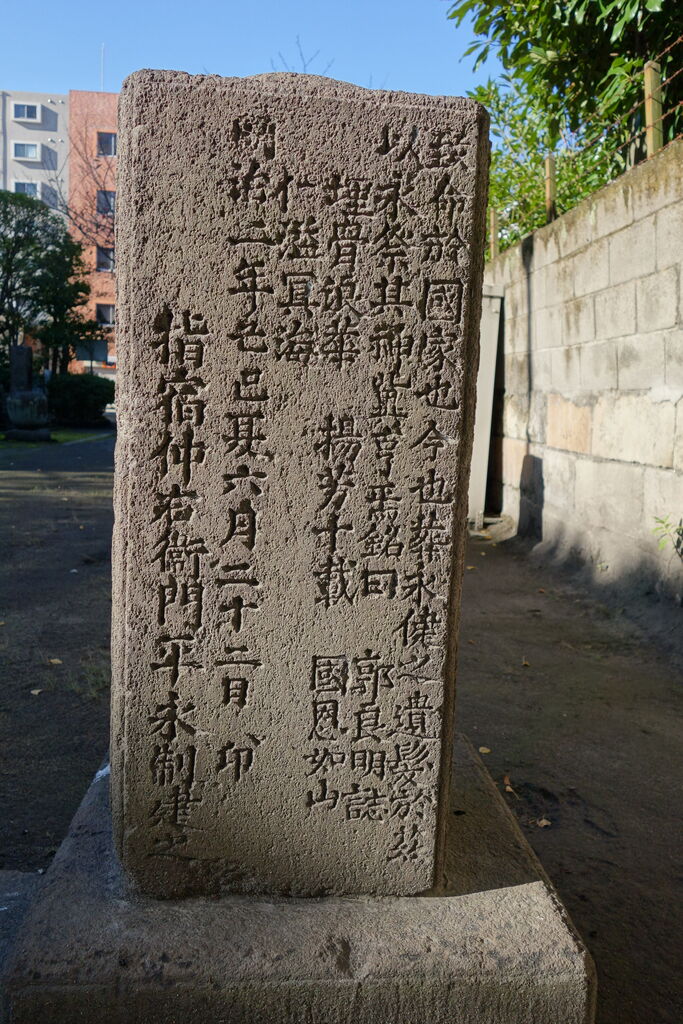 致命於國家也今也葬永健之遺髪於茲
以永祭其神監享焉銘曰 郭良明誌
埋骨浪華 揚芳千載 國恩如山
仁溢冥海
明治二年己巳夏六月二十二日 印
指宿仲右衛門平永制建之